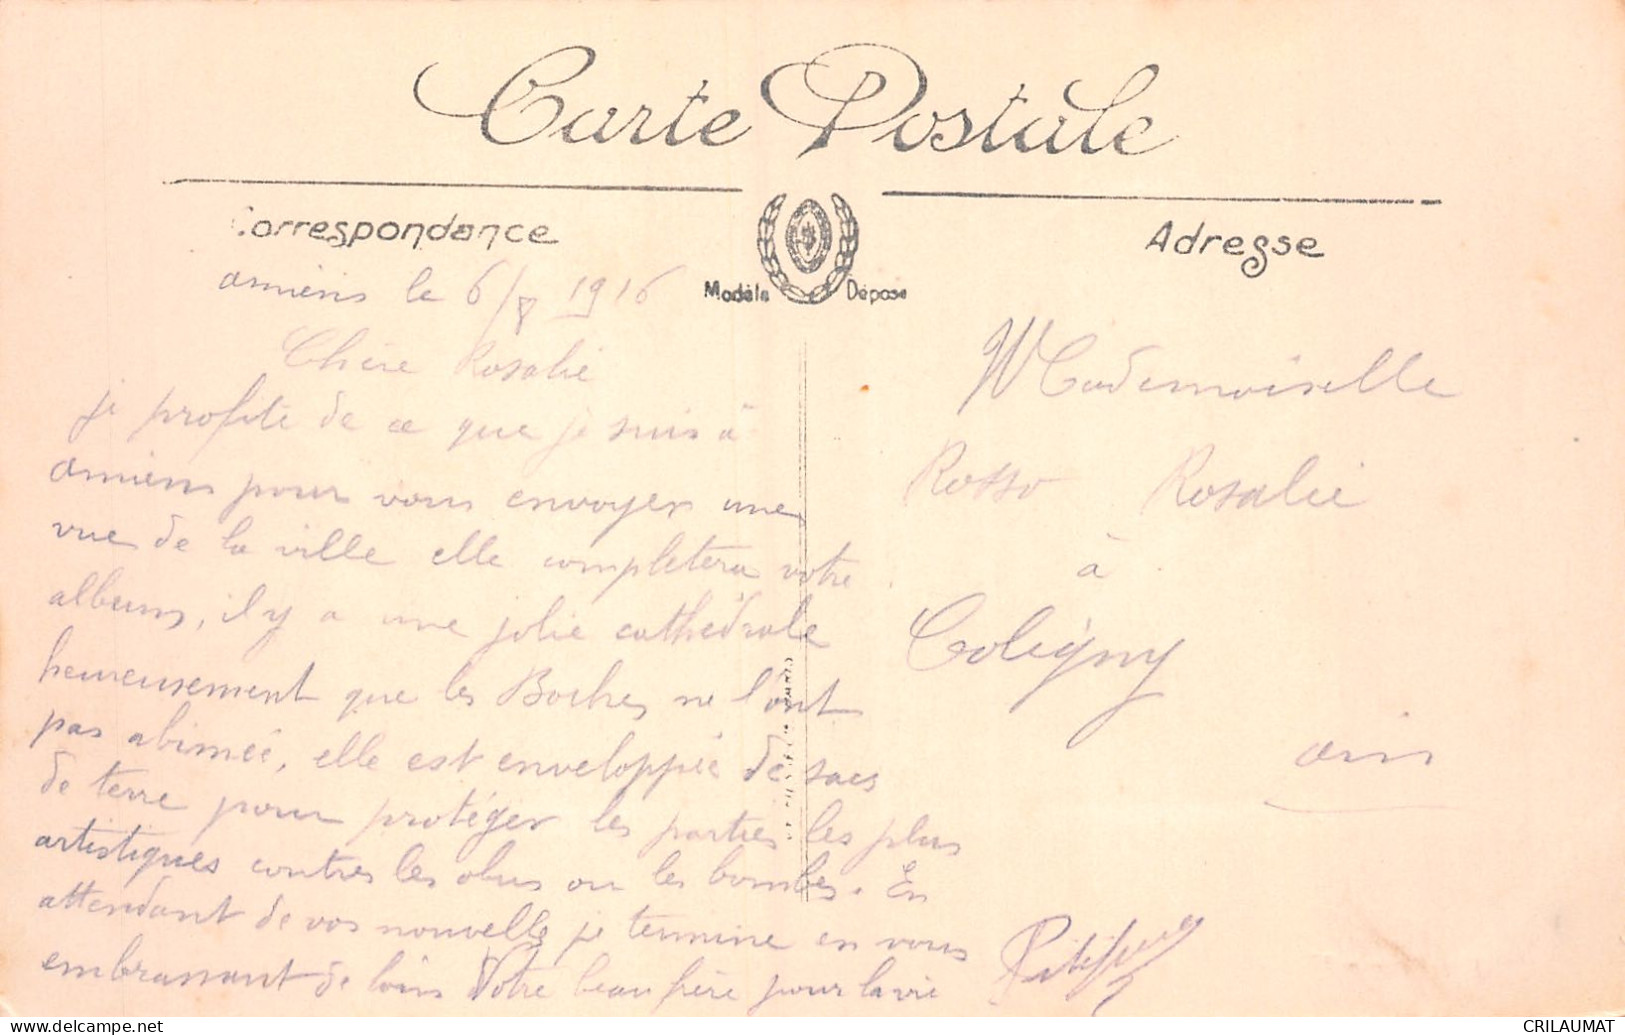 Carte Postale
Correspondance
Adresse
Modèle Déposé
amiens le 6/8 1916
Chère Rosalie
je profite de ce que je suis à
amiens pour vous envoyer une
vue de la ville elle completera votre
album, il y a une jolie cathédrale
heureusement que les Boches ne l'ont
pas abimée, elle est enveloppée de sacs
de terre pour protéger les parties les plus
artistiques contres les obus ou les bombes. En
attendant de vos nouvelles je termine en vous
embrassant de loin Votre beau frère pour la vie
Mademoiselle
Rosso Rosalie
à
Coligny
ain
CRILAUMAT